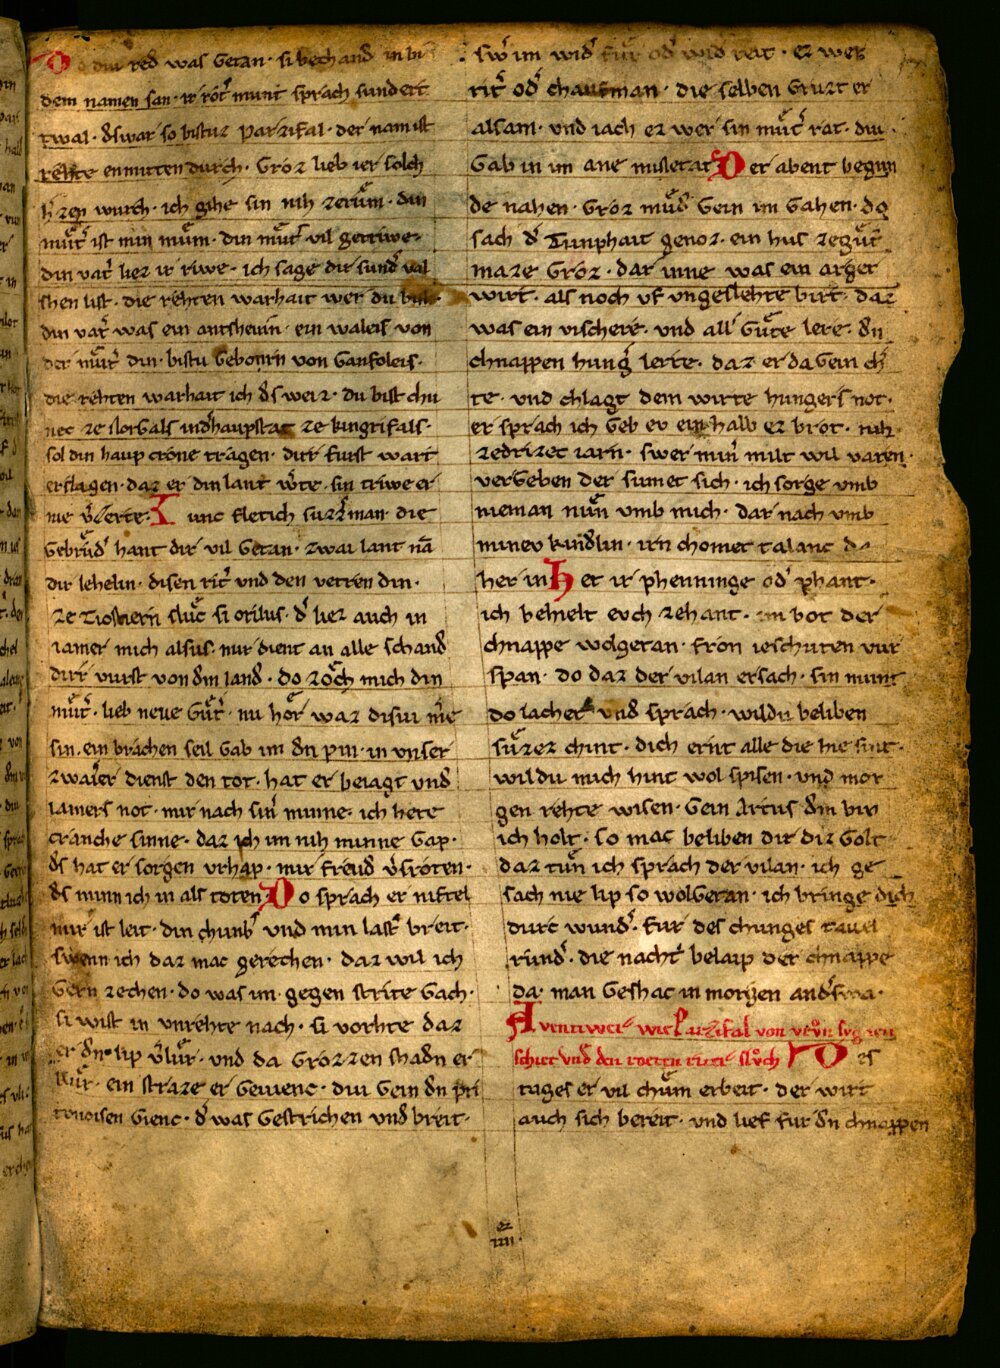 Do diu red was Getan · si bechand in bi
dem namen san · ir rot͛ munt sprach sundert
twal · dſwar so bistuz Parzifal · der nam ist
rehte enmitten durch · Groz lieb ier solch
h͛zen wurch · ich gihe sin nih zerům · din
můt͛ ist min mům · din můt͛ vil getriwe ·
din vat͛ liez ir riwe · ich sage dir sund͛ val
shen list · die rehten warhait wer du bist ·
din vat͛ was ein antshevin · ein waleis von
der můt͛ din · bistu Geborn von Ganfoleis ·
die rehten warhait ich ds weiz · du bist chu
nec ze norGals in d͛ haupstat ze kingrifals ·
sol din haup crone tragen · dirr furst wart
erslagen · daz er din lant w͛te · sin triwe er
nie v͛serte · Iunc fletich suzz͛ man · die
Gebrůd͛ hant dir vil Getan · zwai lant nā
dir lehelin · disen rit͛ und den vetren din ·
ze Tioshern slůc si orilus · d͛ liez auch in
iamer mich alsus · mir dient an alle schand
dirr vurst von din land · do zoch mich din
můt͛ · lieb neve Gůt͛ · nu hor waz disiu m͛e
sin · ein brachen seil Gab im dn pin · in unser
zwair͛ dienst den tot · hat er beiagt und
iamers not · mir nach sin͛ minne · ich hete
cranche sinne · daz ich im nih minne Gap ·
ds hat er sorgen urhap · mir freud v͛sroten ·
ds minn ich in als toten Do sprach er niftel
mir ist leit · din chunb͛ und min last͛ breit ·
swenn ich daz mac gerechen · daz wil ich
Gern zechen · do was im · gegen strite Gach ·
si wist in unrehte nach · si vorhte daz
er dn lip v͛lur · und da Grozzen shadn er
kur · ein straze er Gevienc · diu Gein dn pri
tonoisen Gienc · d͛ was Gestrichen und breit ·
sw͛ im wid͛ fur od͛ wid reit · ez wer
rit͛ od͛ chaufman · die selben Gruzt er
alsam · und iach ez wer sin můt͛ rat · diu
Gab in im ane missetat Der abent begun
de nahen · Groz můd͛ Gein im Gahen · do
sach d͛ Tumphait genoz · ein hus zegůt͛
maze Groz · dar inne was ein arger
wirt · als noch uf ungeslehte birt · daz
was ein vischere · und all͛ Gůte lere · dn
chnappen hung͛ lerte · daz er da Gein ch͛
te · und chlagt dem wirte hungers not ·
er sprach ich Geb ev ein halb ez brot · nih
zedrizec iarn · swer min͛ milt wil varen ·
vergeben der sumet sich · ich sorge umb
nieman nůn umb mich · dar nach umb
minev kindlin · irn chomet talanc da
her in Het ir phenninge od͛ phant ·
ich behielt evch zehant · im bot der
chnappe wolgetan · fron ieschuten vur
span · do daz der vilan ersach · sin munt
do lachet und sprach · wildu beliben
sůzez chint · dich erint alle die hie sint ·
wildu mich hint wol spisen · und mor
gen rehte wisen · Gein Artus dm bin
ich holt · so mac beliben dir diz Golt
daz tůn ich sprach der vilan · ich ge
sach nie lip so wolGetan · ich bringe dich
durc wund͛ · fur des chunges tavel
rund͛ · die nacht belaip der chnappe
da · man Geshac in morgen and͛swa ·
Aventiwer wie Parzifal von vron sygunen
schiet und den roeten riter sluoch Des
tages er vil chům erbeit · der wirt
auch sich bereit · und lief fur dn chnappen
ez
iiii ·